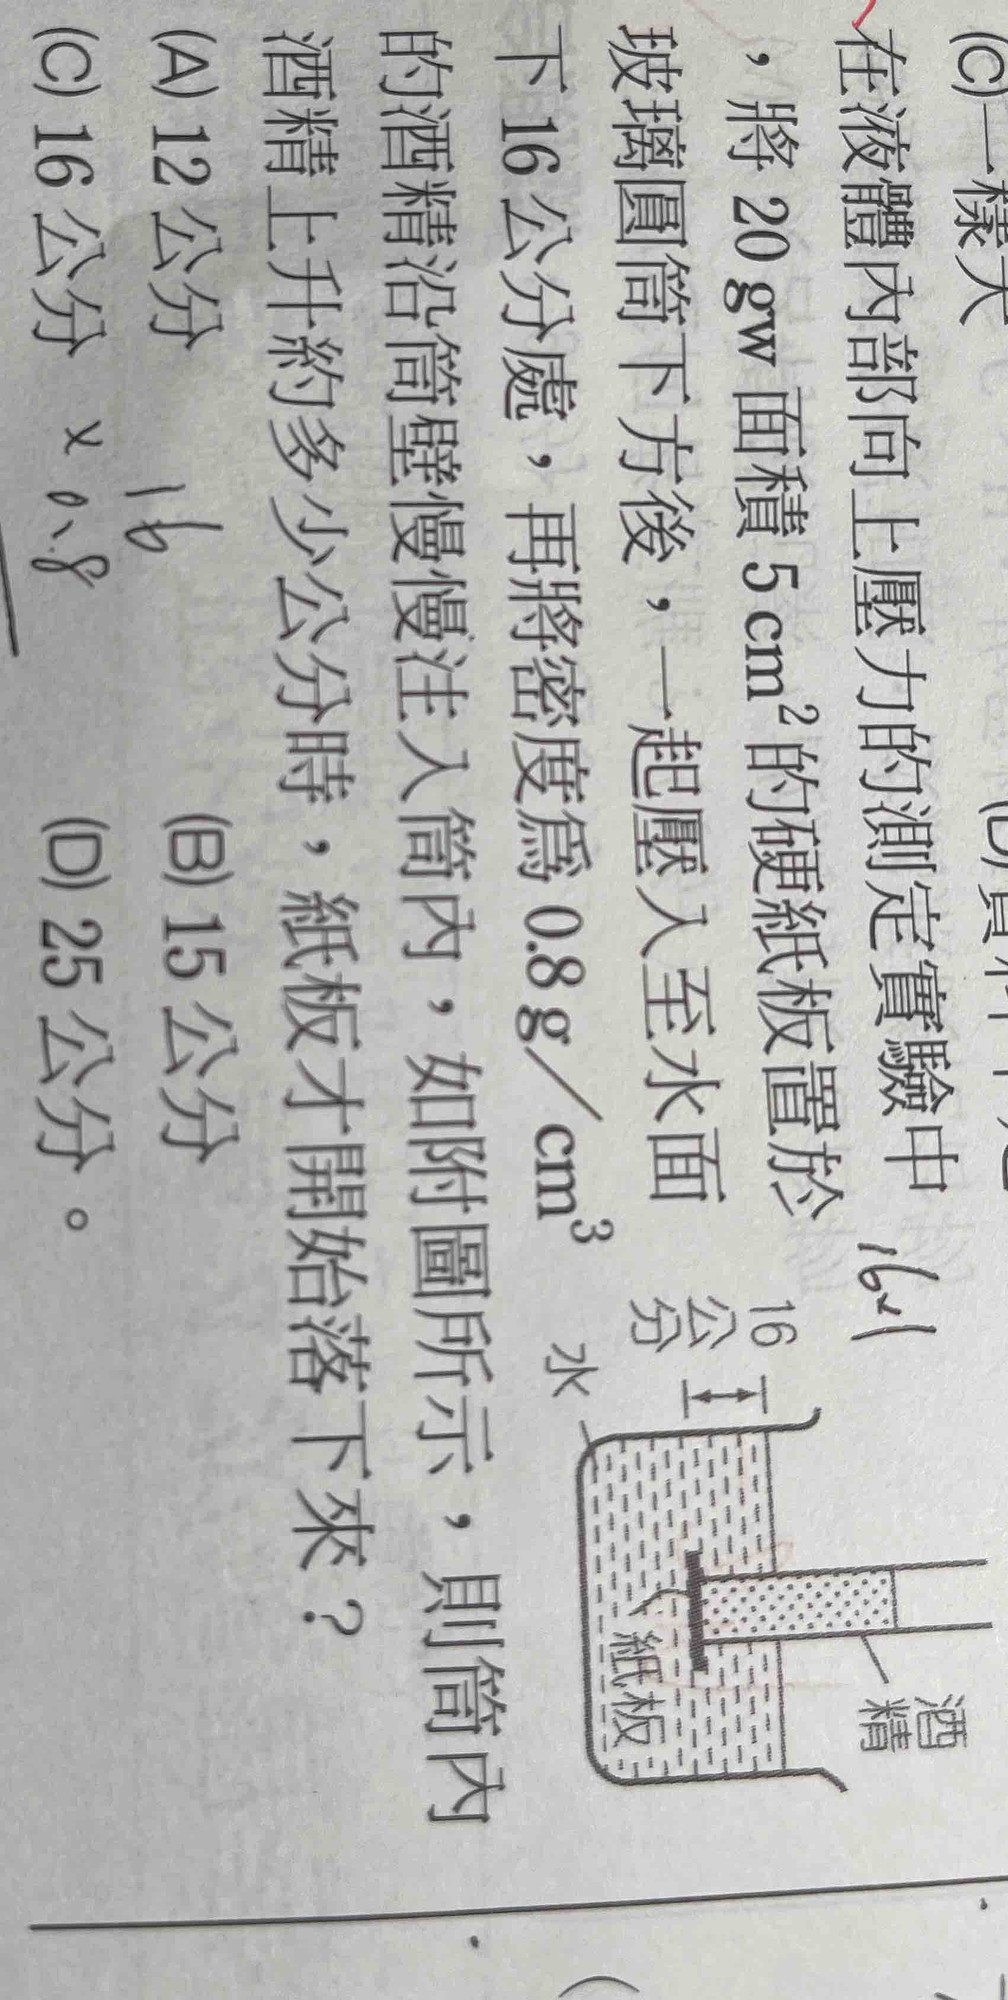 (C)一樣大
在液體內部向上壓力的測定實驗中
，將 20 gw 面積 5 cm² 的硬紙板置於
玻璃圓筒下方後，一起壓入至水面
下 16 公分處，再將密度為 0.8 g／cm³
的酒精沿筒壁慢慢注入筒內，如附圖所示，則筒內
酒精上升約多少公分時，紙板才開始落下來？
(A) 12 公分 (B) 15 公分
(C) 16 公分 (D) 25 公分。
16×1
16
公
分
水
酒
精
紙板
16
× 0.8